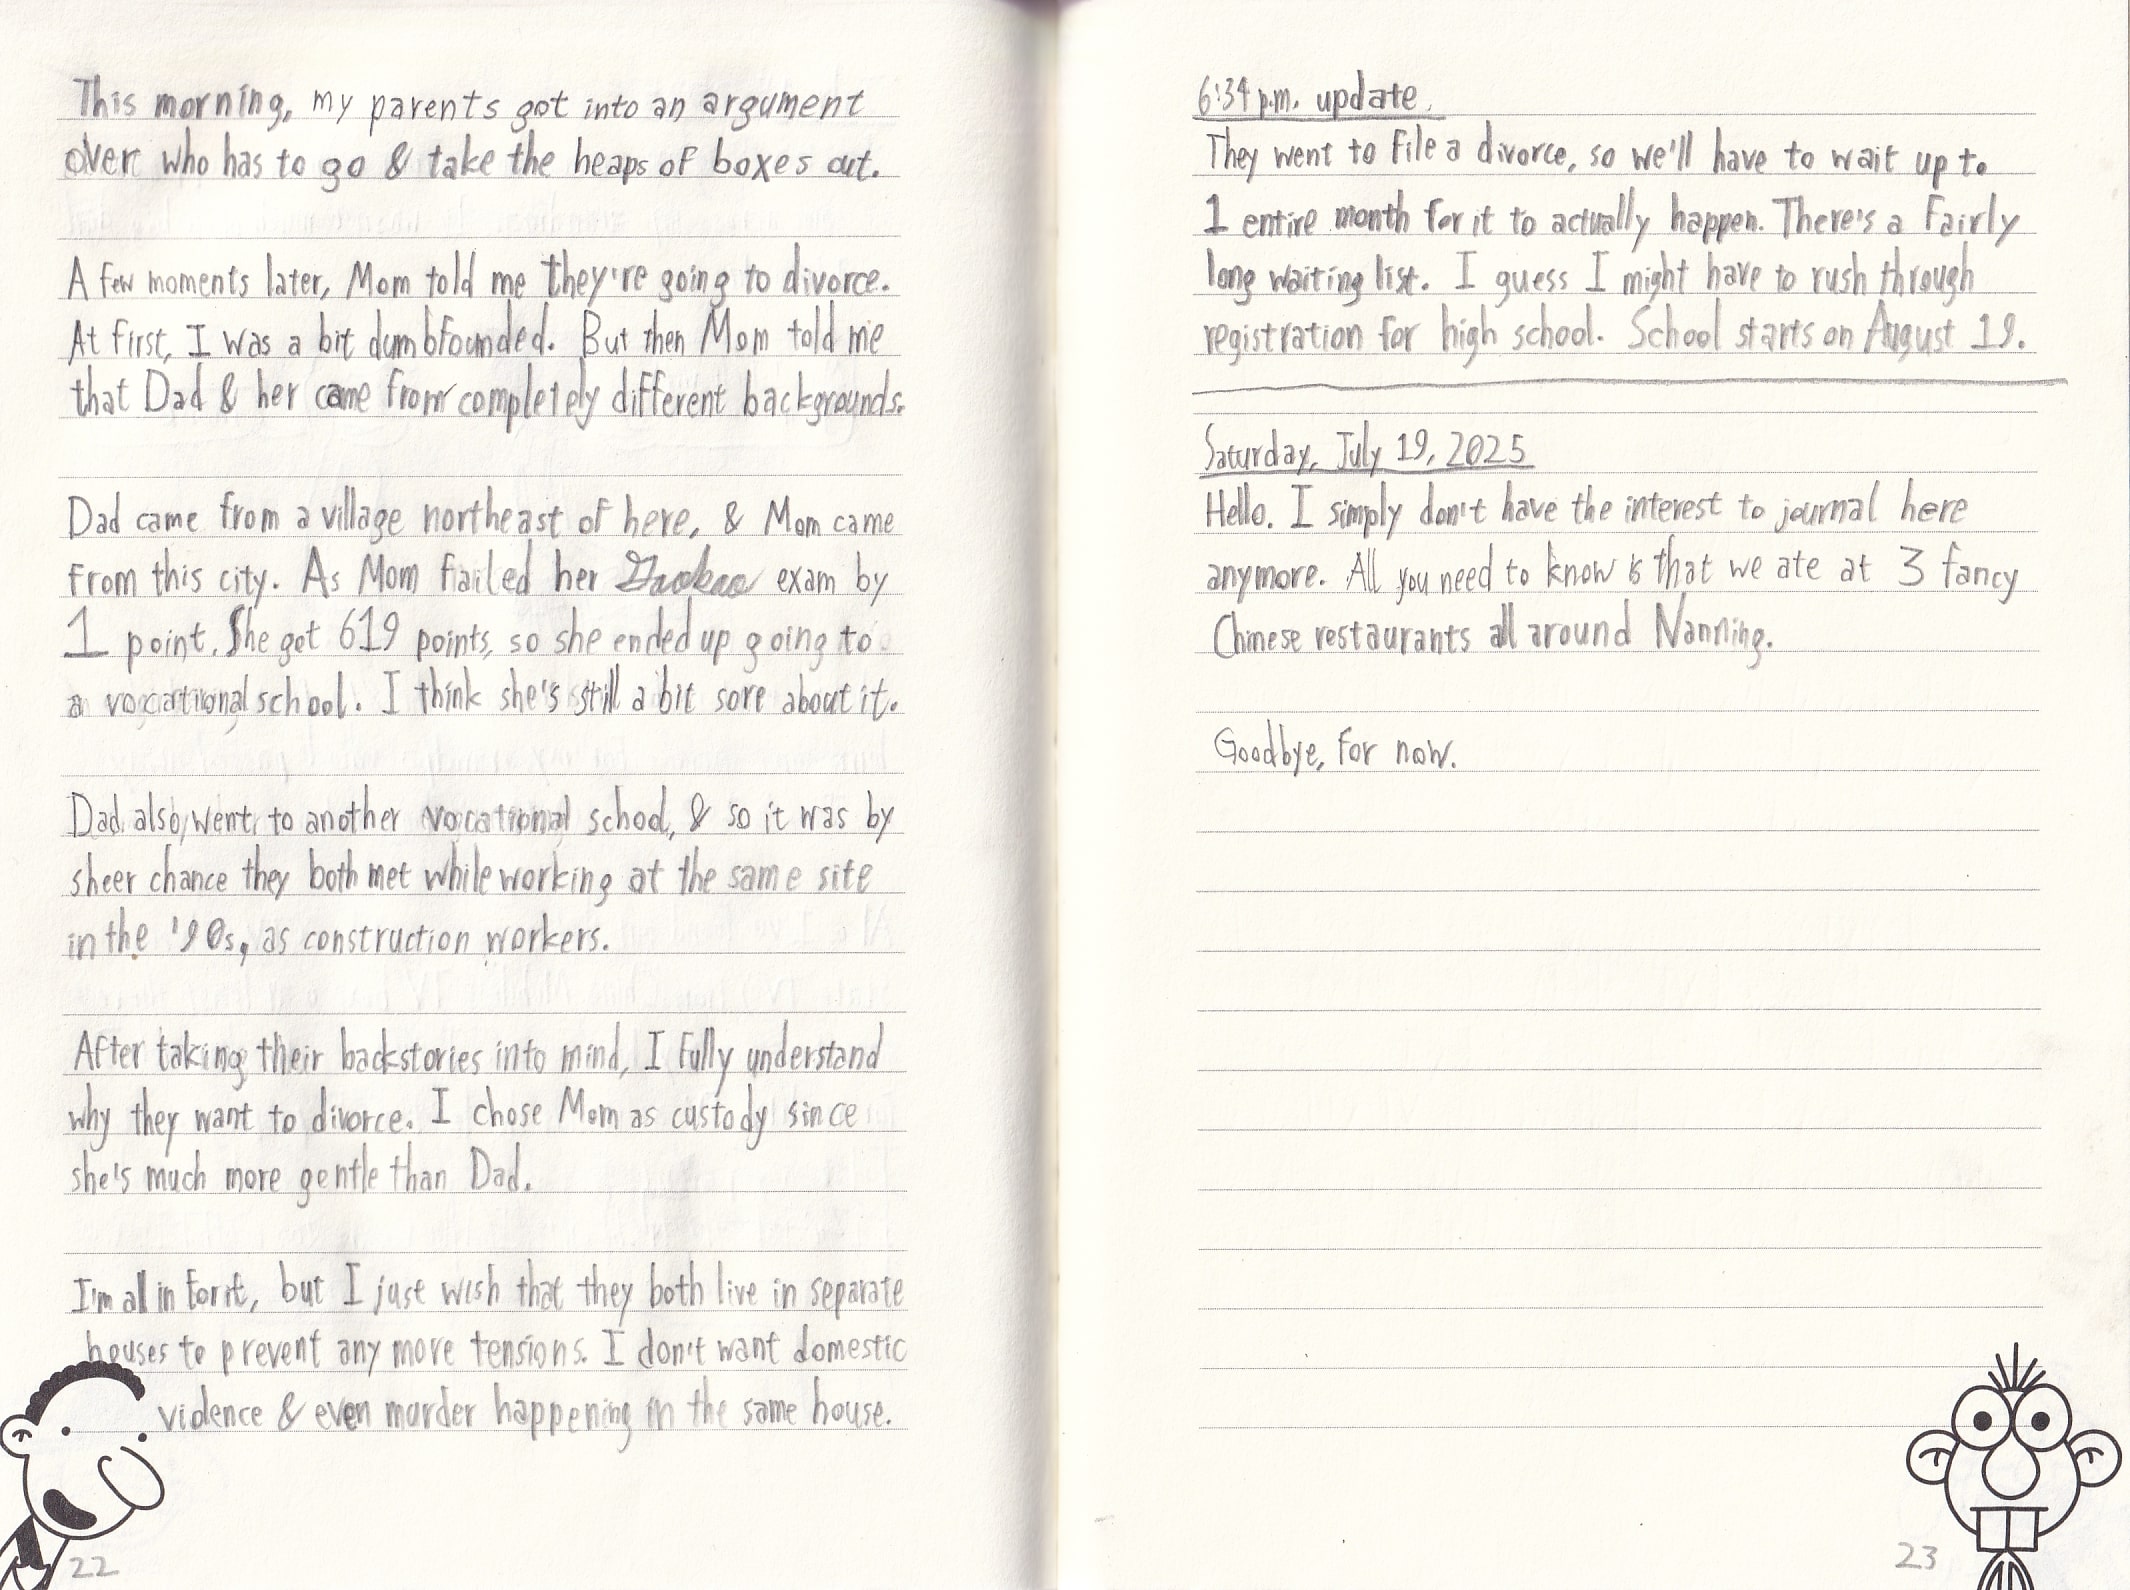 This morning, my parents got into an argument
over who has to go & take the heaps of boxes out.
A few moments later, Mom told me they're going to divorce.
At first, I was a bit dumbfounded. But then Mom told me
that Dad & her came from completely different backgrounds.
Dad came from a village northeast of here, & Mom came
from this city. As Mom failed her Gaokao exam by
1 point. She got 619 points, so she ended up going to
a vocational school. I think she's still a bit sore about it.
Dad also went to another vocational school, & so it was by
sheer chance they both met while working at the same site
in the '90s, as construction workers.
After taking their backstories into mind, I fully understand
why they want to divorce. I chose Mom as custody since
she's much more gentle than Dad.
I'm all in for it, but I just wish that they both live in separate
houses to prevent any more tensions. I don't want domestic
violence & even murder happening in the same house.
22
6:34 p.m. update.
They went to file a divorce, so we'll have to wait up to
1 entire month for it to actually happen. There's a fairly
long waiting list. I guess I might have to rush through
registration for high school. School starts on August 19.
Saturday, July 19, 2025
Hello. I simply don't have the interest to journal here
anymore. All you need to know is that we ate at 3 fancy
Chinese restaurants all around Nanning.
Goodbye, for now.
23